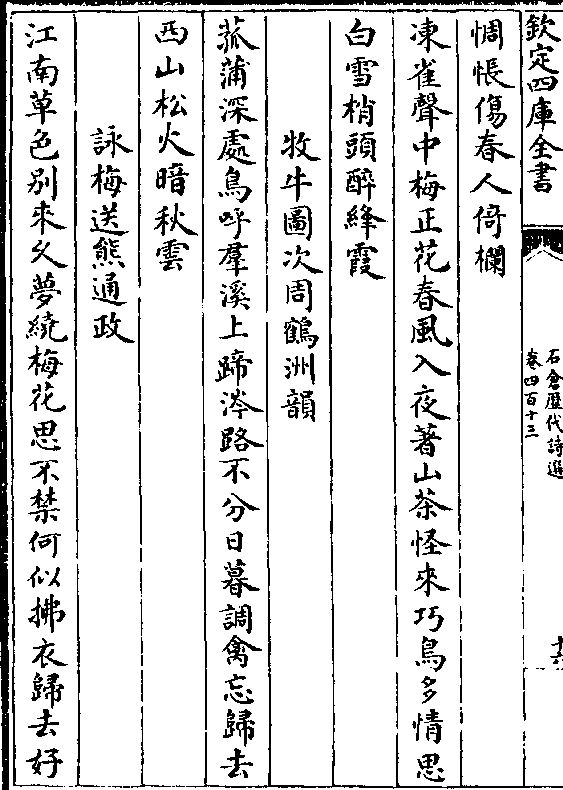 欽定四庫全書
石倉歷代詩選
卷四百十三
十六
惆悵傷春人倚欄
凍雀聲中梅正花春風入夜著山茶怪來巧鳥多情思
白雪梢頭醉絳霞
牧牛圖次周鶴洲韻
菰蒲深處鳥呼羣溪上蹄涔路不分日暮調禽忘歸去
西山松火暗秋雲
詠梅送熊通政
江南草色別來久夢繞梅花思不禁何似拂衣歸去好